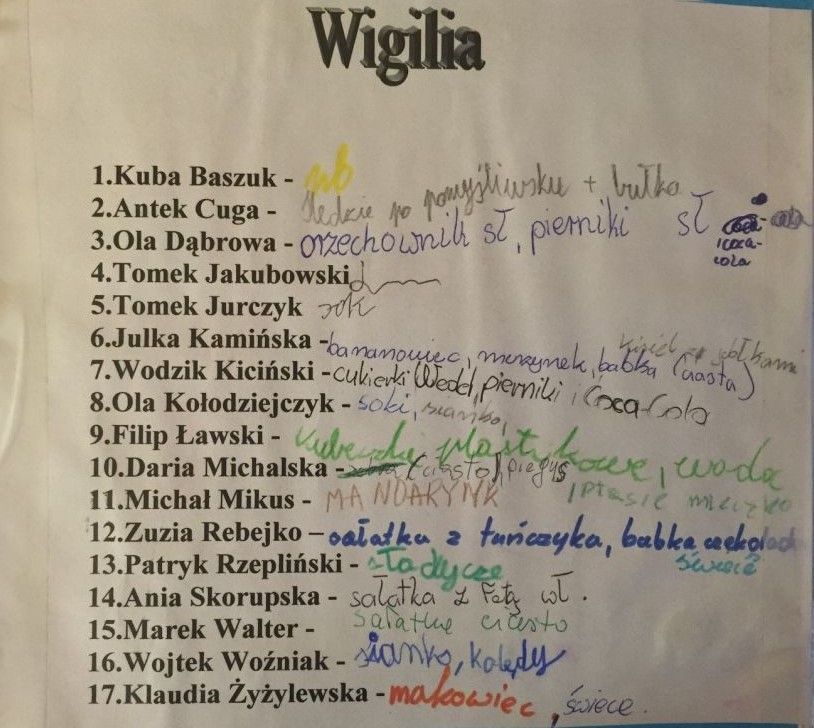 Wigilia
1.Kuba Baszuk -
2.Antek Cuga - śledzie po pomyśliwsku + bułka
3.Ola Dąbrowa - orzechownik sł, pierniki sł i coca-cola
4.Tomek Jakubowski
5.Tomek Jurczyk sok
6.Julka Kamińska - bananowiec, murzynek, babka (ciasta)
7.Wodzik Kiciński - cukierki Wedel, pierniki i Coca-Cola
8.Ola Kołodziejczyk - soki, sianko,
9.Filip Ławski - kubeczki plastykowe, woda
10.Daria Michalska - (ciasto) piegus
11.Michał Mikus - MANDARYNK i Ptasie mleczko
12.Zuzia Rebejko – sałatka z tuńczyka, babka czekolad
13.Patryk Rzepliński - słodycze świece
14.Ania Skorupska - sałatka z Fetą wł.
15.Marek Walter - sałatkę ciasto
16.Wojtek Woźniak - sianko, kolędy
17.Klaudia Żyżylewska - makowiec, świece.